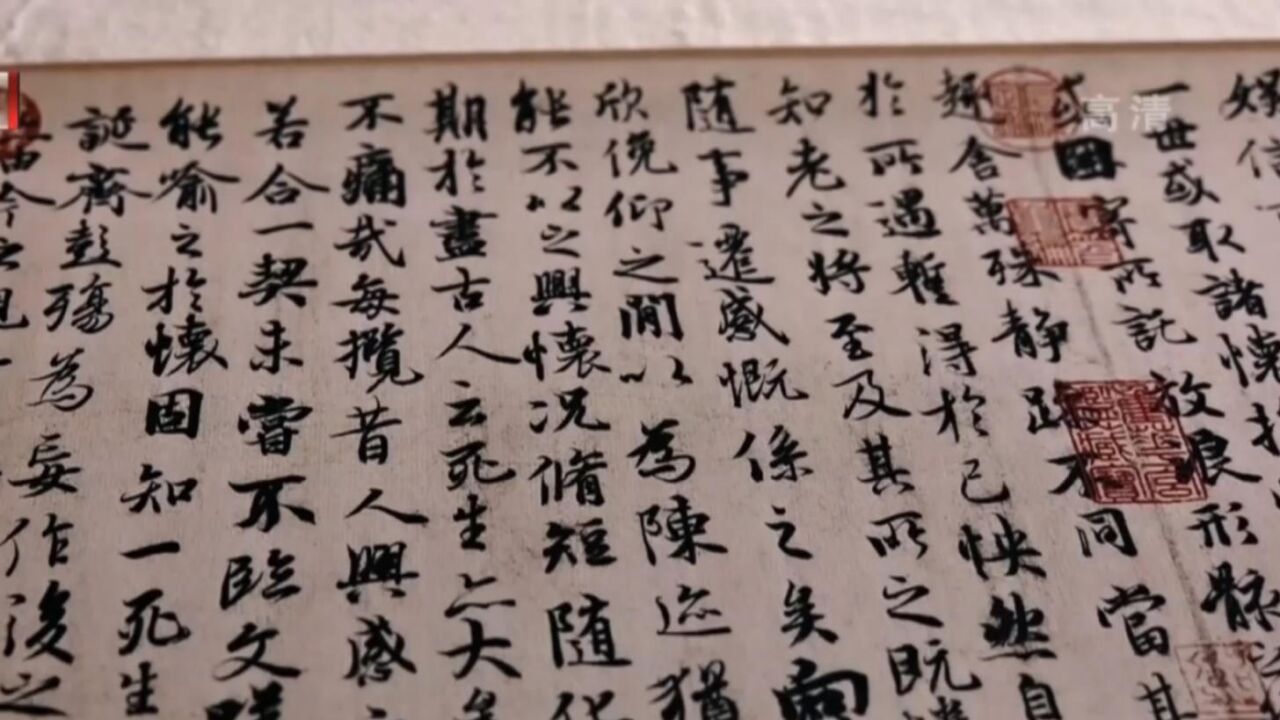 娛信
一世或取諸懷抱
或因寄所託放浪形骸
趣舍萬殊静躁不同當其
於所遇蹔得於己怏然自
知老之將至及其所之既惓
隨事遷感慨係之矣向
欣俛仰之閒以為陳迹猶
能不以之興懷況脩短隨化
期於盡古人云死生亦大矣
不痛哉每攬昔人興感
若合一契未嘗不臨文嗟
能喻之於懷固知一死生
誕齊彭殤為妄作後之
由今之視
高清